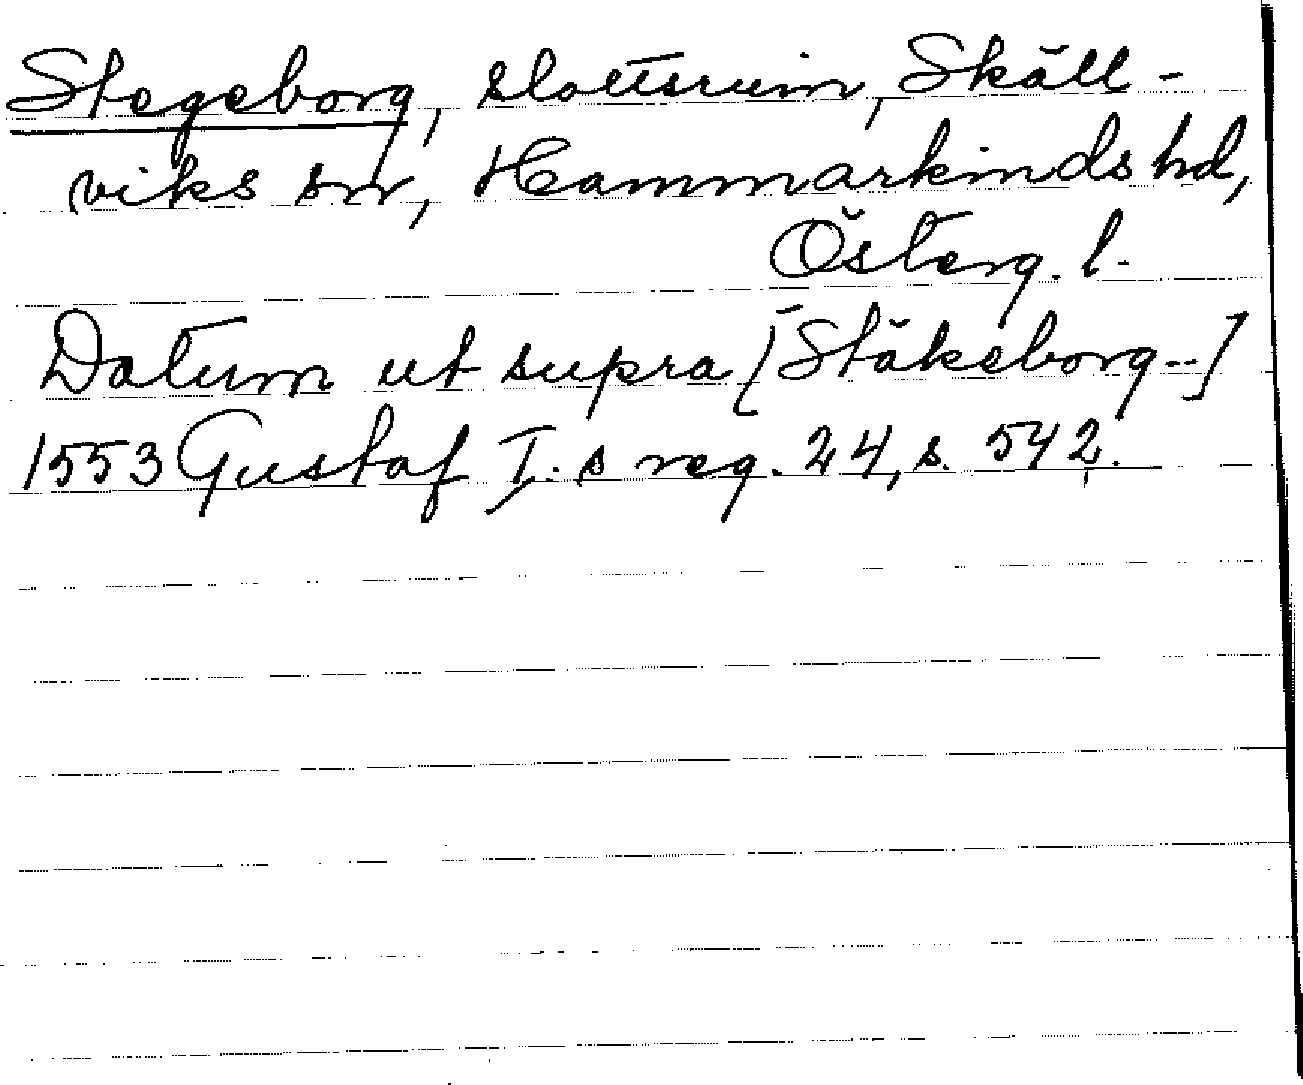 Stegeborg, slottsruin, Skäll-
viks sn, Hammarkinds hd,
Österg. l.
Datum ut supra [Stäkeborg--]
1553 Gustaf I:s reg. 24, s. 542.